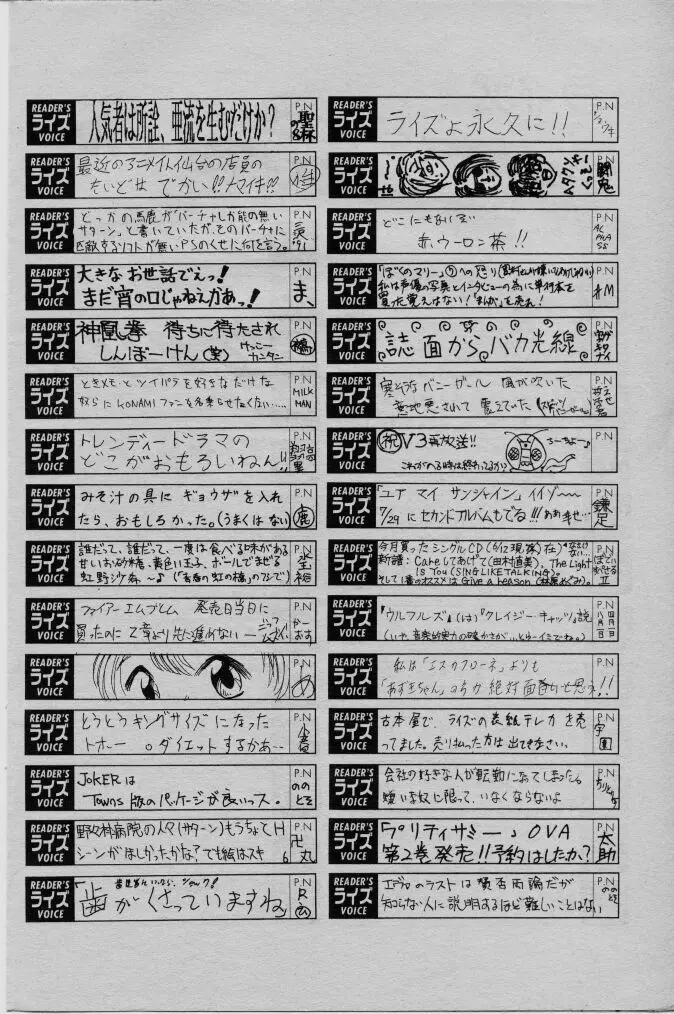 READER'S
ライズ
VOICE
人気者は所詮、亜流を生むだけか?
P.N
READER'S
ライズ
VOICE
最近のアニメイト仙台の店員の
でかい!!
P.N
READER'S
ライズ
VOICE
どっかの馬鹿が「バーチャしか能の無い
サターン」と書いていたが、そのバーチャに
匹敵するソフトが無いPSのくせに何を言う。
P.N
'91
READER'S
ライズ
VOICE
大きなお世話でぇっ!
まだ宵の口じゃねえかあっ!
P.N
ま、
READER'S
ライズ
VOICE
神凰拳 待ちに待たされ
しんぼーけん(笑)
P.N
READER'S
ライズ
VOICE
ときメモとツインパラを好きなだけな
奴らにKONAMIファンを名乗らせたくない……
P.N
MILK
MAN
READER'S
ライズ
VOICE
トレンディードラマの
どこがおもろいねん!!
P.N
READER'S
ライズ
VOICE
みそ汁の具に ギョウザを入れ
たら、おもしろかった。(うまくはない)
P.N
鹿
READER'S
ライズ
VOICE
誰だって、誰だって、一度は食べる味がある
甘いお砂糖、黄色い玉子、ボールでまぜる
虹野沙希〜♪(「青春の虹の橋」のフシで)
P.N
READER'S
ライズ
VOICE
ファイアーエムブレム 発売日当日に
買ったのに2章より先に進めない
P.N
かー
おす
READER'S
ライズ
VOICE
P.N
め
READER'S
ライズ
VOICE
とうとうキングサイズになった
トホー 。ダイエットするかぁ…
P.N
READER'S
ライズ
VOICE
JOKERは
Towns版のパッケージが良いっス。
P.N
ののとそ
READER'S
ライズ
VOICE
野々村病院の人々(サターン)もうちょてH
シーンがほしかったかな?でも絵はスキ
P.N
卍丸
6
READER'S
ライズ
VOICE
「歯がくさっていますね」
P.N
READER'S
ライズ
VOICE
ライズよ永久に!!
P.N
READER'S
ライズ
VOICE
P.N
READER'S
ライズ
VOICE
どこにもないぞ
赤ウーロン茶!!
P.N
READER'S
ライズ
VOICE
「ぼくのマリー」⑦への怒り
私は声優の写真とインタビューの為に単行本を
買った覚えはない!「まんが」を売れ!
P.N
#M
READER'S
ライズ
VOICE
誌面からバカ光線
P.N
READER'S
ライズ
VOICE
寒そうなバニーガール 風が吹いた
意地悪されて 震えていた
P.N
READER'S
ライズ
VOICE
祝V3再放送!!
これがのる時は終わってるかい?
P.N
READER'S
ライズ
VOICE
「ユア マイ サンシャイン」イイゾ〜〜
7/29に セカンドアルバムもでる!!!ああ幸せ…
P.N
鎌足
READER'S
ライズ
VOICE
今月買ったシングルCD(6/12現在)
新譜:Careしてあげて(田村直美)、The Light
is You(SING LIKE TALKING)。
そして1番のオススメはGive a reason(林原めぐみ)。
P.N
READER'S
ライズ
VOICE
『ウルフルズ』(は)『クレイジー・キャッツ』説
P.N
四月一日
八月一日
READER'S
ライズ
VOICE
私は「エスカフローネ」よりも
「あずきちゃん」のちが絶対面白いと思え!!
P.N
READER'S
ライズ
VOICE
古本屋で、ライズの表紙テレカを売
ってました。売り払った方は出てきなさい。
P.N
READER'S
ライズ
VOICE
会社の好きな人が転勤になってしまった。
嫌いな奴に限って、いなくならないよ
P.N
READER'S
ライズ
VOICE
「プリティサミー」OVA
第2巻発売!!予約はしたか?
P.N
太助
READER'S
ライズ
VOICE
エヴァのラストは賛否両論だが
知らない人に説明するほど難しいことはない
P.N
ののとそ